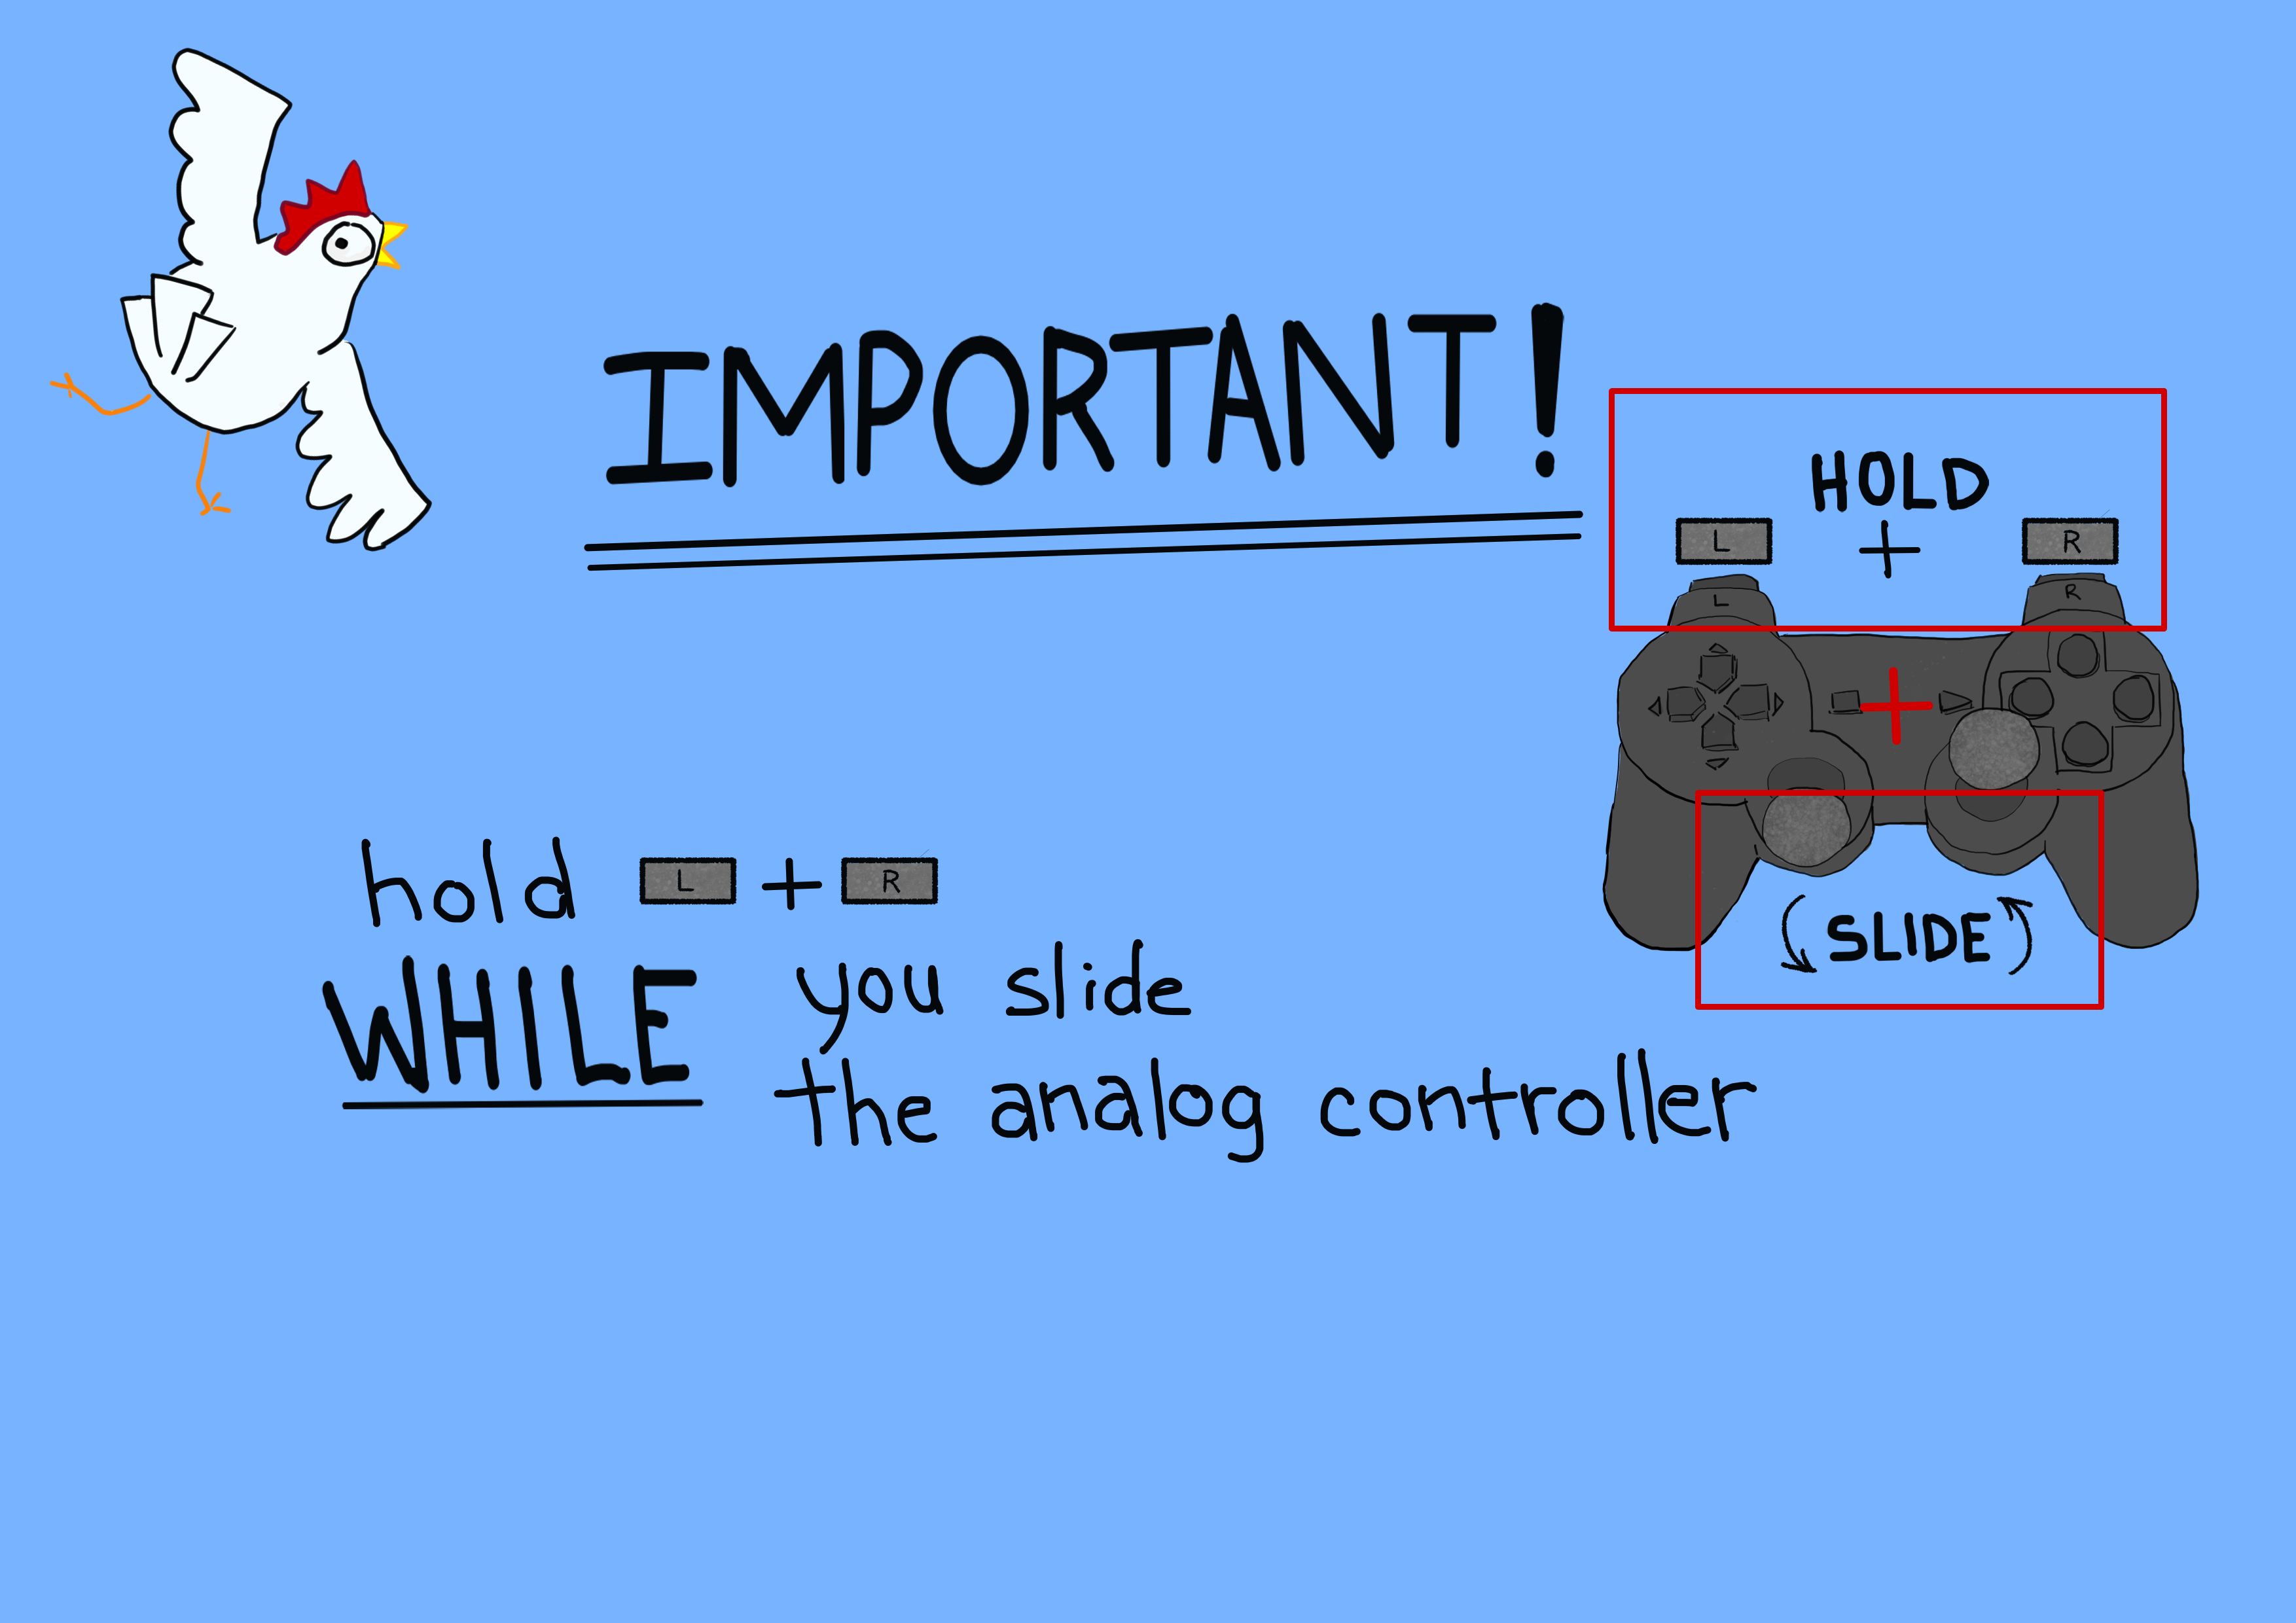 IMPORTANT!
HOLD
L + R
L R
SLIDE
hold L + R
WHILE you slide
the analog controller